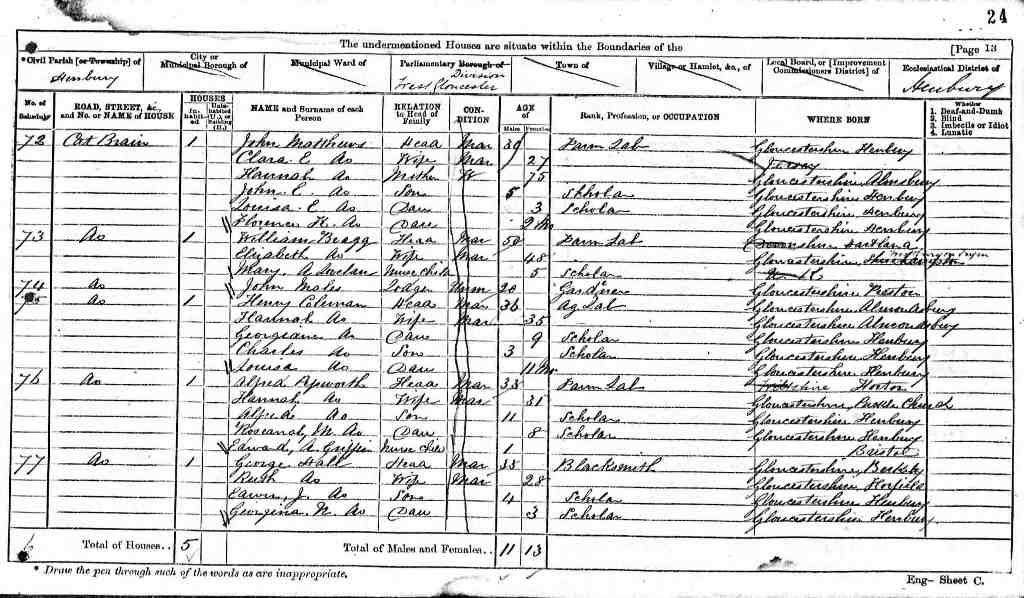 24
The undermentioned Houses are situate within the Boundaries of the
[Page 13
* Civil Parish [or Township] of
Henbury
City or Municipal Borough of
Municipal Ward of
Parliamentary Borough of
Division
West Gloucester
Town of
Village or Hamlet, &c., of
Local Board, or [Improvement Commissioners District] of
Ecclesiastical District of
Henbury
No. of Schedule
ROAD, STREET, &c., and No. or NAME of HOUSE
HOUSES
Inhabited
Uninhabited (U.), or Building (B.)
NAME and Surname of each Person
RELATION to Head of Family
CONDITION
AGE of
Males
Females
Rank, Profession, or OCCUPATION
WHERE BORN
Whether
1. Deaf-and-Dumb
2. Blind
3. Imbecile or Idiot
4. Lunatic
72 Cat Brain 1 John Matthews Head Mar 39 Farm Lab Gloucestershire Henbury
Clara E. do Wife Mar 27
Hannah do Mother W 75 Gloucestershire Almesbury
John E. do Son 5 Scholar Gloucestershire Henbury
Louisa E do Dau 3 Scholar Gloucestershire Henbury
Florence H. do Dau 2 Mo Gloucestershire Henbury
73 do 1 William Bragg Head Mar 50 Farm Lab Devonshire Hartland
Elizabeth do Wife Mar 48 Gloucestershire
Mary A Nurse Child 5 Scholar
74 do John Males Lodger Unm 20 Gardiner Gloucestershire
75 do 1 Henry Coleman Head Mar 36 Ag Lab Gloucestershire Almondsbury
Hannah do Wife Mar 35 Gloucestershire Almondsbury
Georgiana do Dau 9 Scholar Gloucestershire Henbury
Charles do Son 3 Scholar Gloucestershire Henbury
Louisa do Dau 11 Mo Gloucestershire Henbury
76 do 1 Alfred Apworth Head Mar 33 Farm Lab Wiltshire Horton
Hannah do Wife Mar 31 Gloucestershire Church
Alfred do Son 11 Scholar Gloucestershire Henbury
Roseanah M. do Dau 8 Scholar Gloucestershire Henbury
Edward A. Griffin Nurse Child 1 Bristol
77 do 1 George Hall Head Mar 35 Blacksmith Gloucestershire Berkeley
Ruth do Wife Mar 28 Gloucestershire Horfield
Edwin J. do Son 4 Scholar Gloucestershire Henbury
Georgina N. do Dau 3 Scholar Gloucestershire Henbury
Total of Houses.. 5
Total of Males and Females.. 11 13
* Draw the pen through such of the words as are inappropriate.
Eng- Sheet C.